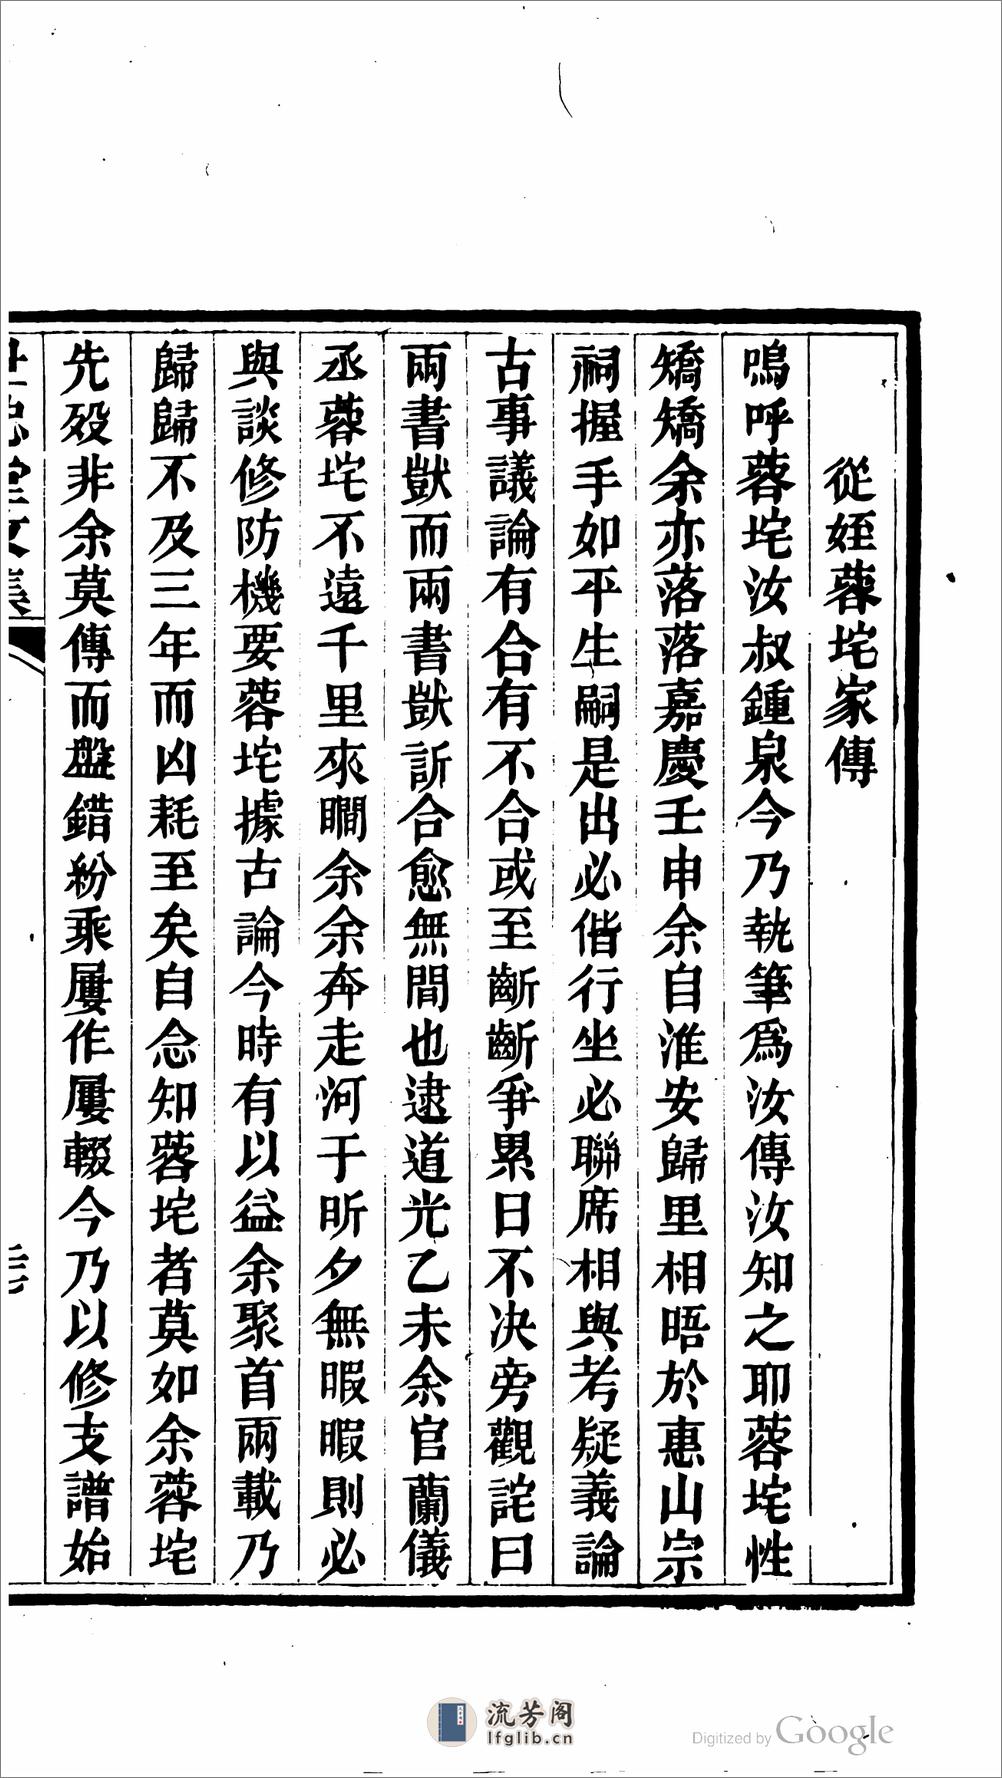 從姪蓉垞家傳
嗚呼蓉垞汝叔鍾泉今乃執筆爲汝傳汝知之耶蓉垞性
矯矯余亦落落嘉慶壬申余自淮安歸里相晤於惠山宗
祠握手如平生嗣是出必偕行坐必聯席相與考疑義論
古事議論有合有不合或至齗齗爭累日不決旁觀詫曰
兩書獃而兩書獃訢合愈無間也逮道光乙未余官蘭儀
丞蓉垞不遠千里來瞷余余奔走河于昕夕無暇暇則必
與談修防機要蓉垞據古論今時有以益余聚首兩載乃
歸歸不及三年而凶耗至矣自念知蓉垞者莫如余蓉垞
先歿非余莫傳而盤錯紛乘屢作屢輟今乃以修支譜始
文集
流芳阁
lfglib.cn
Digitized by Google